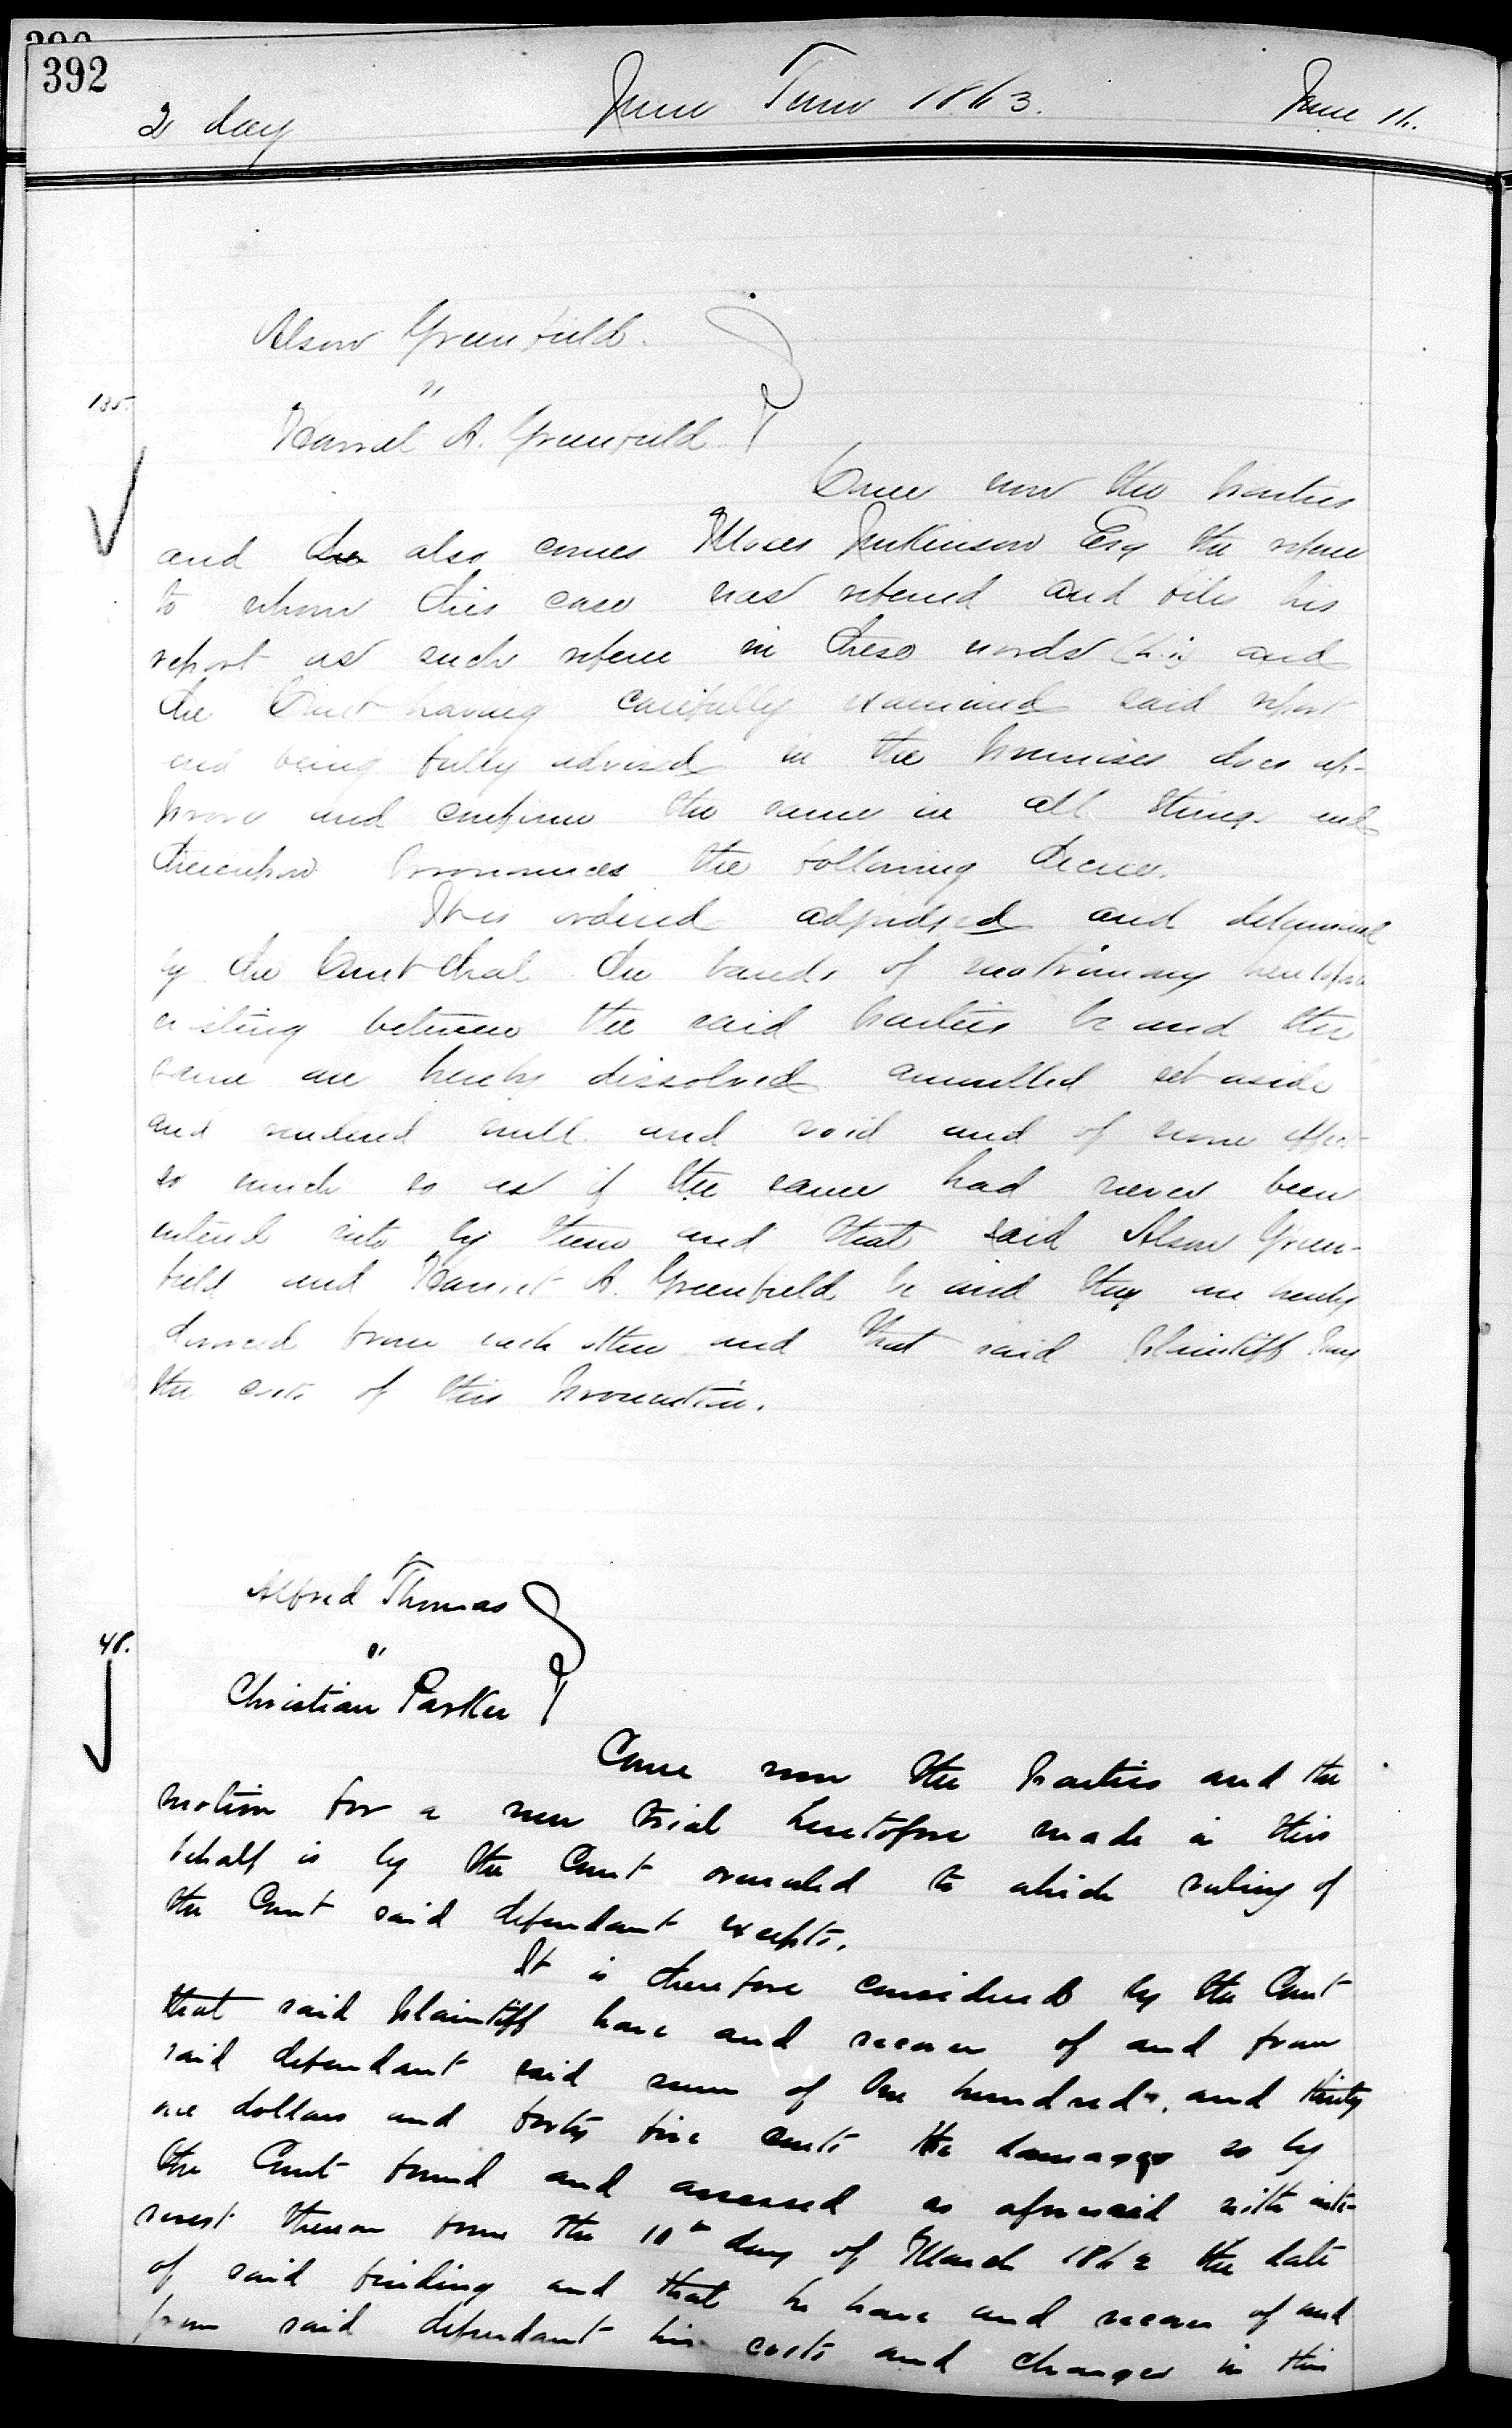 392
2 day June Term 1863. June 16.
Alson Greenfield.
"
135.
Harriet A. Greenfield
Come now the parties
and the also comes Moses Jenkinson Esq the referee
to whom this case was refered and files his
report as such referee in these words (h.i) and
the Court having carefully examined said report
and being fully advised in the premises does ap-
prove and confirm the same in all things and
thereupon pronounces the following decree.
It is ordered adjudged and determined
by the Court that the bands of matrimony heretofore
existing between the said parties be and the
same are hereby dissolved annulled set aside
and rendered null and void and of none effect
so much so as if the same had never been
entered into by them and that said Alson Green-
field and Harriet A. Greenfield be and they are hereby
divorced from each other and that said plaintiff pay
the costs of this prosecution.
Alfred Thomas
48.
"
Christian Parker
Come now the parties and the
motion for a new trial heretofore made in this
behalf is by the Court overruled to which ruling of
the Court said defendant excepts.
It is therefore considered by the Court
that said plaintiff have and recover of and from
said defendant said sum of One hundred and thirty
one dollars and forty five cents the damages so by
the Court found and assessed as aforesaid with inte-
rest thereon from the 10th day of March 1862 the date
of said finding and that he have and recover of and
from said defendant his costs and charges in this